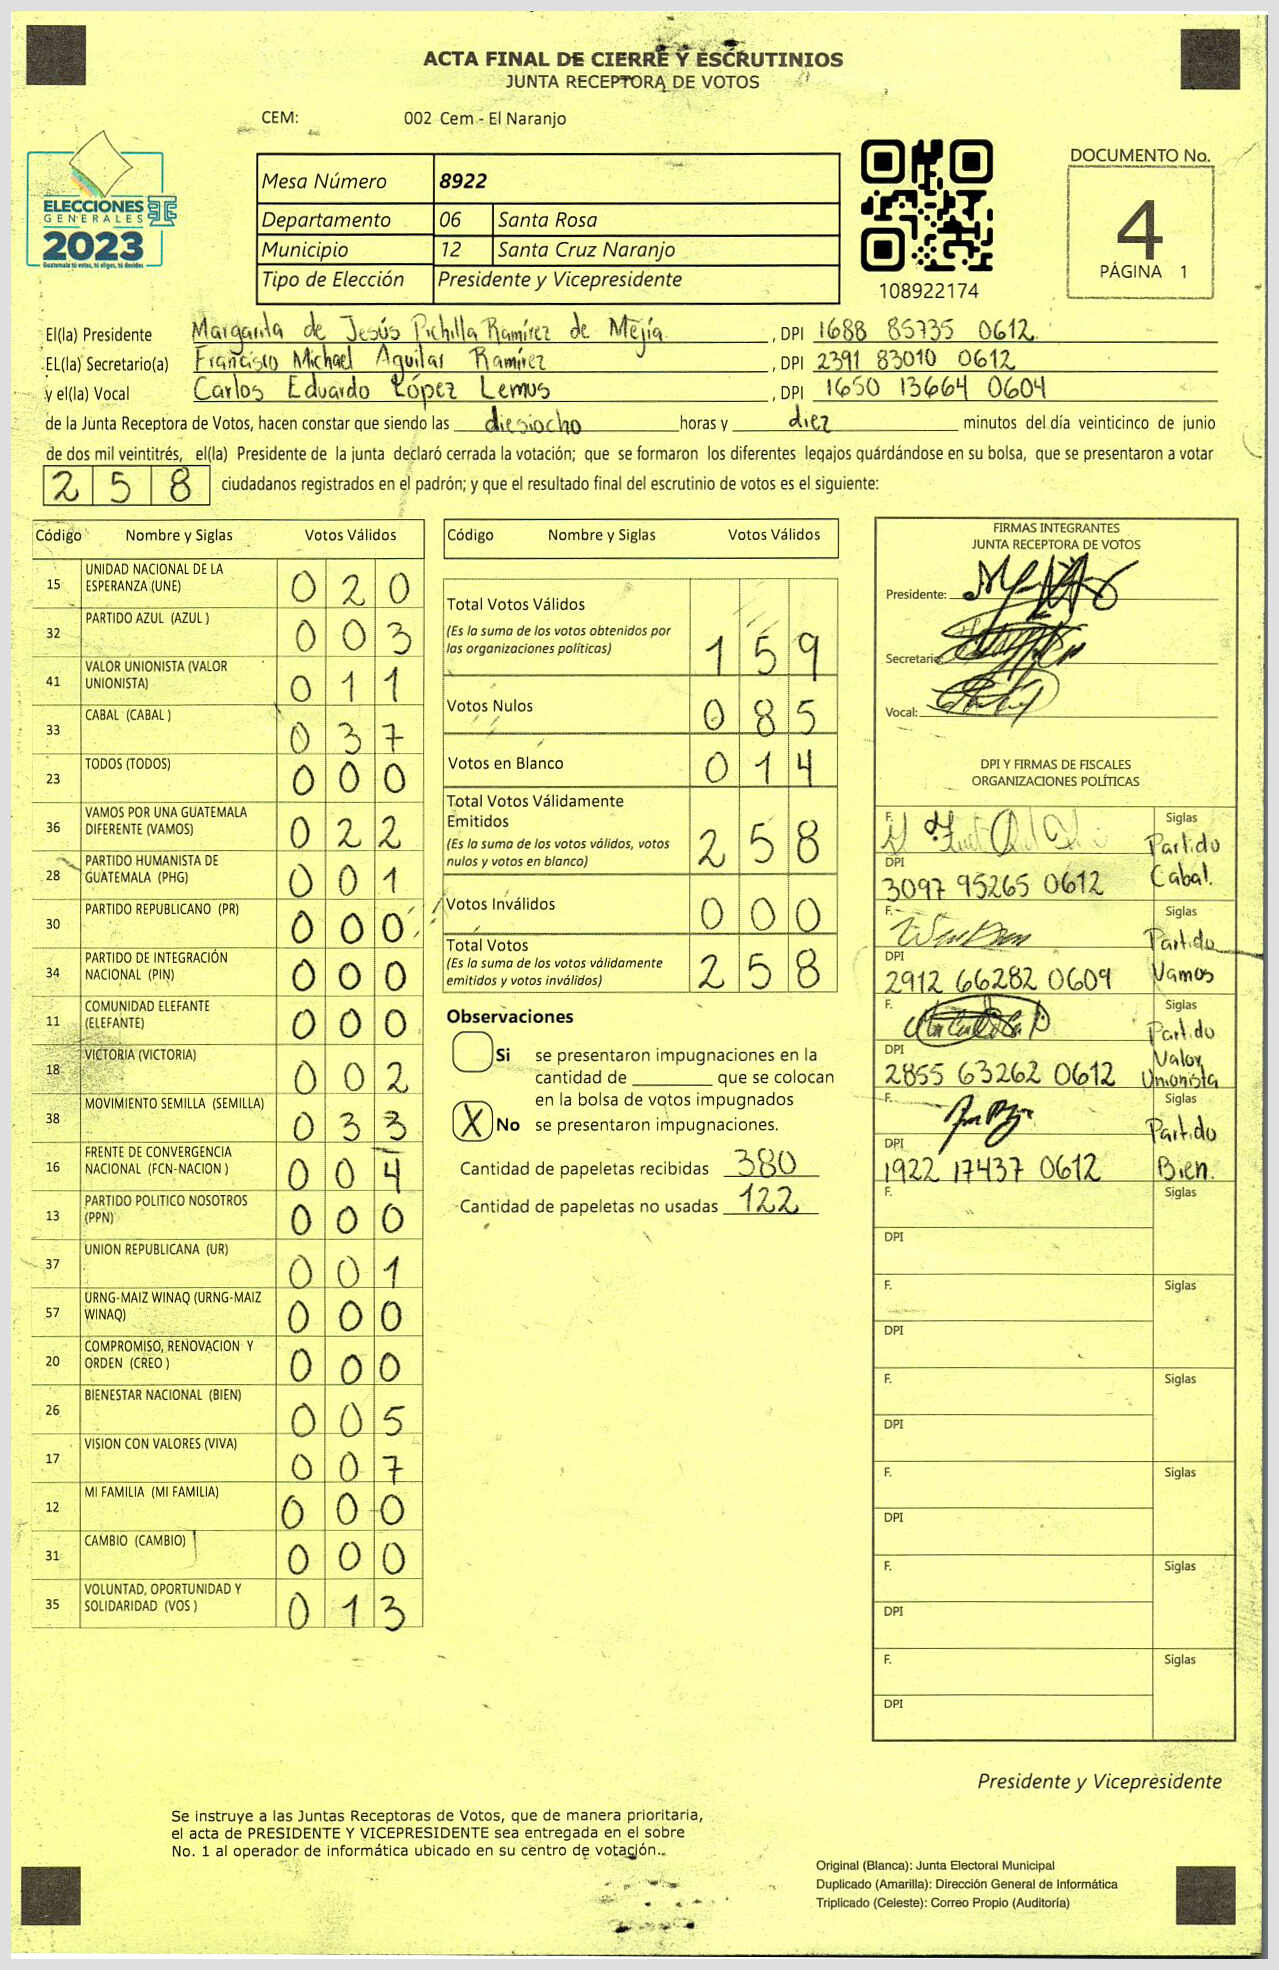 ACTA FINAL DE CIERRE Y ESCRUTINIOS
JUNTA RECEPTORA DE VOTOS
CEM: 002 Cem - El Naranjo
ELECCIONES
GENERALES
2023
Guatemala tú votas, tú eliges, tú decides
Mesa Número 8922
Departamento 06 Santa Rosa
Municipio 12 Santa Cruz Naranjo
Tipo de Elección Presidente y Vicepresidente
108922174
DOCUMENTO No.
4
PÁGINA 1
El(la) Presidente Margarita de Jesús Pichilla Ramírez de Mejía , DPI 1688 85735 0612
EL(la) Secretario(a) Francisco Michael Aguilar Ramírez , DPI 2391 83010 0612
y el(la) Vocal Carlos Eduardo López Lemus , DPI 1650 13664 0604
de la Junta Receptora de Votos, hacen constar que siendo las diesiocho horas y diez minutos del día veinticinco de junio
de dos mil veintitrés, el(la) Presidente de la junta declaró cerrada la votación; que se formaron los diferentes legajos quárdándose en su bolsa, que se presentaron a votar
258 ciudadanos registrados en el padrón; y que el resultado final del escrutinio de votos es el siguiente:
Código Nombre y Siglas Votos Válidos
15 UNIDAD NACIONAL DE LA
ESPERANZA (UNE) 020
32 PARTIDO AZUL (AZUL ) 003
41 VALOR UNIONISTA (VALOR
UNIONISTA) 011
33 CABAL (CABAL ) 037
23 TODOS (TODOS) 000
36 VAMOS POR UNA GUATEMALA
DIFERENTE (VAMOS) 022
28 PARTIDO HUMANISTA DE
GUATEMALA (PHG) 001
30 PARTIDO REPUBLICANO (PR) 000
34 PARTIDO DE INTEGRACIÓN
NACIONAL (PIN) 000
11 COMUNIDAD ELEFANTE
(ELEFANTE) 000
18 VICTORIA (VICTORIA) 002
38 MOVIMIENTO SEMILLA (SEMILLA) 033
16 FRENTE DE CONVERGENCIA
NACIONAL (FCN-NACION ) 004
13 PARTIDO POLITICO NOSOTROS
(PPN) 000
37 UNION REPUBLICANA (UR) 001
57 URNG-MAIZ WINAQ (URNG-MAIZ
WINAQ) 000
20 COMPROMISO, RENOVACION Y
ORDEN (CREO ) 000
26 BIENESTAR NACIONAL (BIEN) 005
17 VISION CON VALORES (VIVA) 007
12 MI FAMILIA (MI FAMILIA) 000
31 CAMBIO (CAMBIO) 000
35 VOLUNTAD, OPORTUNIDAD Y
SOLIDARIDAD (VOS ) 013
Código Nombre y Siglas Votos Válidos
Total Votos Válidos
(Es la suma de los votos obtenidos por
las organizaciones políticas) 159
Votos Nulos 085
Votos en Blanco 014
Total Votos Válidamente
Emitidos
(Es la suma de los votos válidos, votos
nulos y votos en blanco) 258
Votos Inválidos 000
Total Votos
(Es la suma de los votos válidamente
emitidos y votos inválidos) 258
Observaciones
Si se presentaron impugnaciones en la
cantidad de ________ que se colocan
en la bolsa de votos impugnados
X No se presentaron impugnaciones.
Cantidad de papeletas recibidas 380
Cantidad de papeletas no usadas 122
FIRMAS INTEGRANTES
JUNTA RECEPTORA DE VOTOS
Presidente:
Secretario:
Vocal:
DPI Y FIRMAS DE FISCALES
ORGANIZACIONES POLÍTICAS
F. Siglas
Partido
DPI
3097 95265 0612 Cabal.
F. Siglas
Partido
DPI
2912 66282 0609 Vamos
F. Siglas
Partido
DPI Valor
2855 63262 0612 Unionista
F. Siglas
Partido
DPI
1922 17437 0612 Bien.
F. Siglas
DPI
F. Siglas
DPI
F. Siglas
DPI
F. Siglas
DPI
F. Siglas
DPI
F. Siglas
DPI
Presidente y Vicepresidente
Se instruye a las Juntas Receptoras de Votos, que de manera prioritaria,
el acta de PRESIDENTE Y VICEPRESIDENTE sea entregada en el sobre
No. 1 al operador de informática ubicado en su centro de votación..
Original (Blanca): Junta Electoral Municipal
Duplicado (Amarilla): Dirección General de Informática
Triplicado (Celeste): Correo Propio (Auditoría)